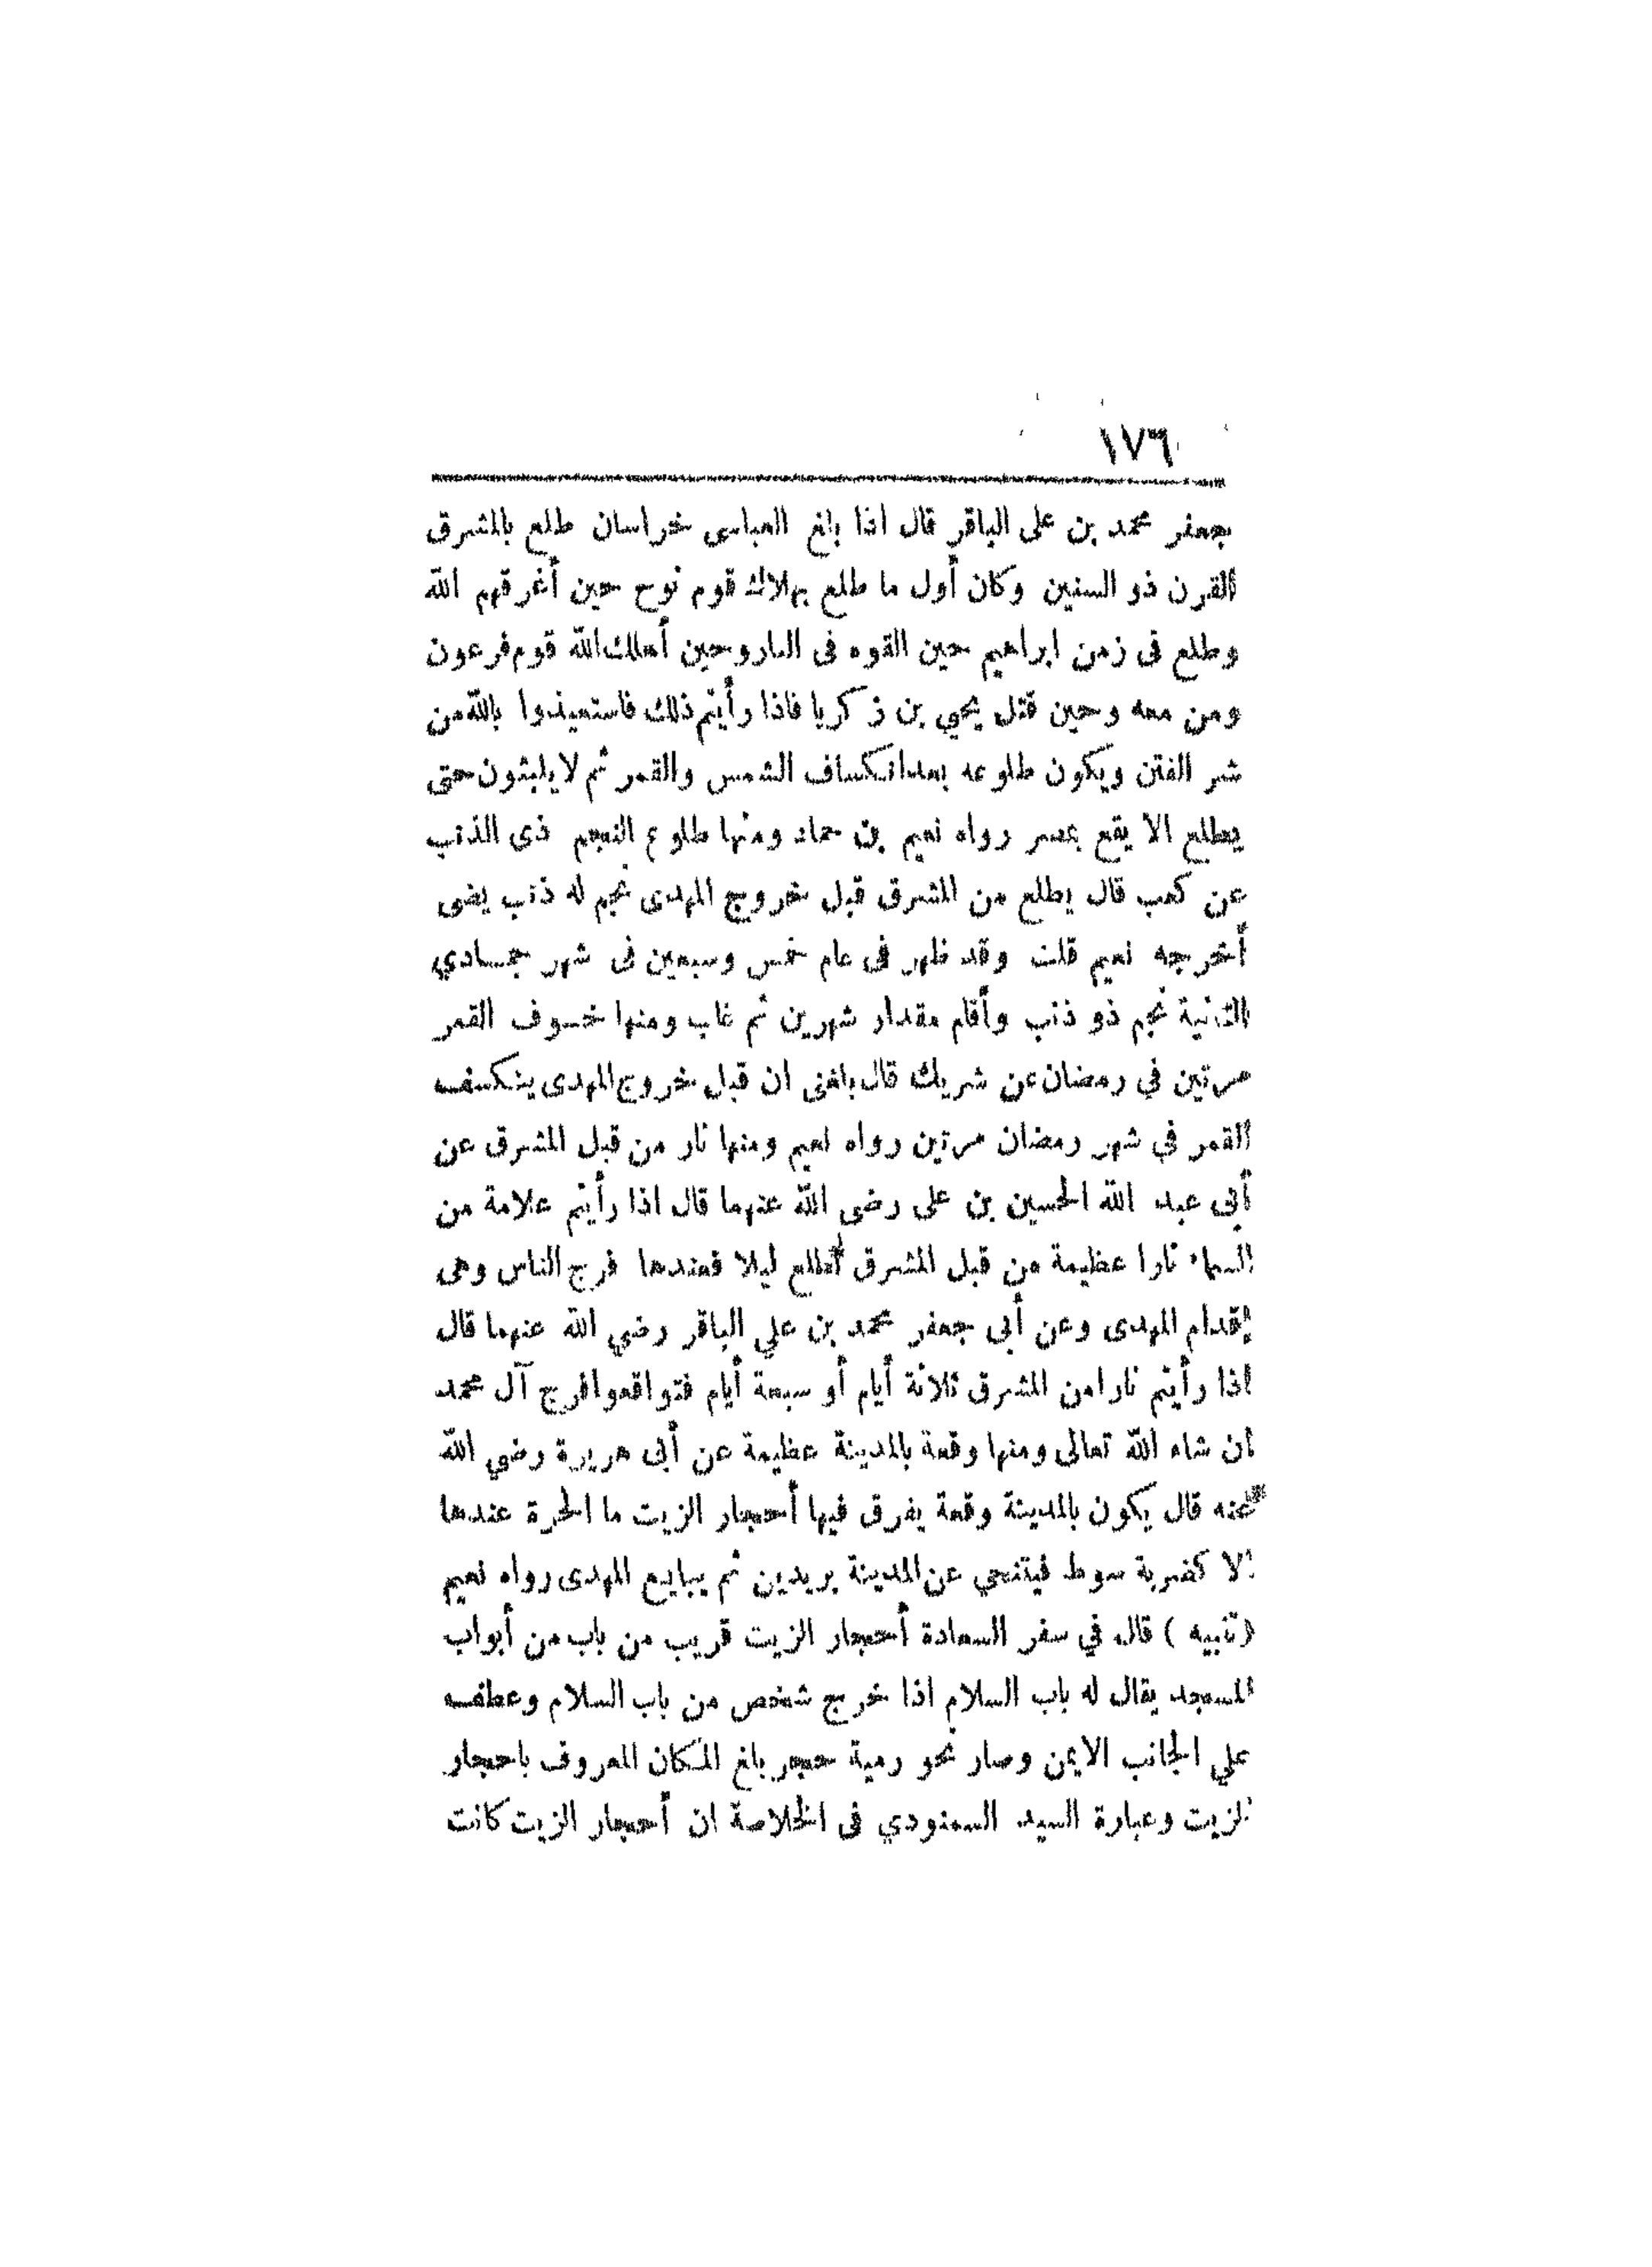 ١٧٦
جعفر محمد بن على الباقر قال اذا بلغ العباسى خراسان طلع بالمشرق
القرن ذو السنين وكان أول ما طلع بهلاك قوم نوح حين أغرقهم الله
وطلع فى زمن ابراهيم حين القوه فى النار وحين أهلك الله قوم فرعون
ومن معه وحين قتل يحي بن زكريا فاذا رأيتم ذلك فاستعيذوا بالله من
شر الفتن ويكون طلوعه بعد انكساف الشمس والقمر ثم لا يلبثون حتى
يطلع الا يقع بمصر رواه نعيم بن حماد ومنها طلوع النجم ذى الذنب
عن كعب قال يطلع من المشرق قبل خروج المهدى نجم له ذنب يضى
أخرجه نعيم قلت وقد ظهر فى عام خمس وسبعين فى شهر جمادي
الثانية نجم ذو ذنب وأقام مقدار شهرين ثم غاب ومنها خسوف القمر
مرتين في رمضان عن شريك قال بلغنى ان قبل خروج المهدى ينكسف
القمر في شهر رمضان مرتين رواه نعيم ومنها نار من قبل المشرق عن
أبى عبد الله الحسين بن على رضى الله عنهما قال اذا رأيتم علامة من
السماء نارا عظيمة من قبل المشرق تطلع ليلا فعندها فرج الناس وهى
إقدام المهدى وعن أبى جعفر محمد بن علي الباقر رضي الله عنهما قال
اذا رأيتم نارا من المشرق ثلاثة أيام أو سبعة أيام فتواقعوا فرج آل محمد
ان شاء الله تعالى ومنها وقعة بالمدينة عظيمة عن أبى هريرة رضي الله
عنه قال يكون بالمدينة وقعة يفرق فيها أحجار الزيت ما الحرة عندها
الا كضربة سوط فيتنحي عن المدينة بريدين ثم يبايع المهدى رواه نعيم
(تنبيه) قال في سفر السعادة أحجار الزيت قريب من باب من أبواب
المسجد يقال له باب السلام اذا خرج شخص من باب السلام وعطف
علي الجانب الايمن وصار نحو رمية حجر بلغ المكان المعروف باحجار
الزيت وعبارة السيد السمنودي فى الخلاصة ان أحجار الزيت كانت